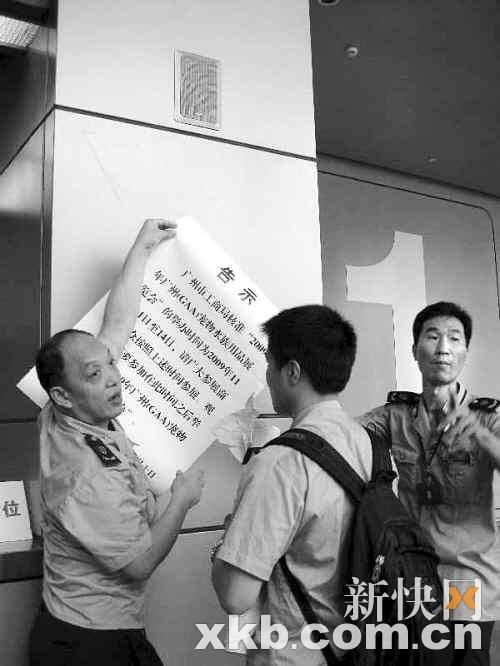 新快网
告示
广州市工商局核准“2009
年广州(GAA)宠物水族用品展
览会”的举办时间为2009年11
日至14日，请广大参展商
会按照上述时间参展、观
要参加在此时间之后举
9年广州(GAA)宠物
1
位
新快网
xkb.com.cn